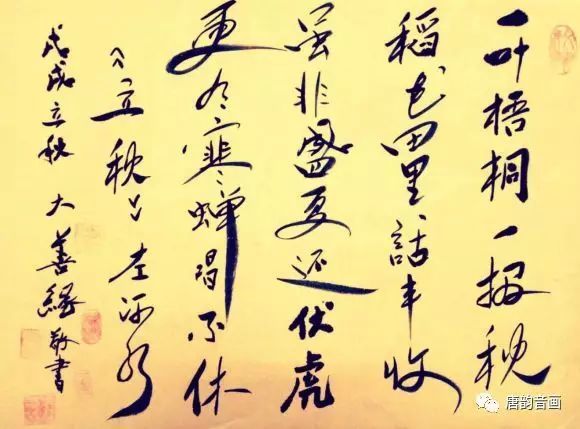 一叶梧桐一报秋
稻花田里話丰收
虽非盛夏还伏虎
更有寒蝉唱不休
《立秋》左河水
戊戌立秋 大善緣敬書
唐韵音画